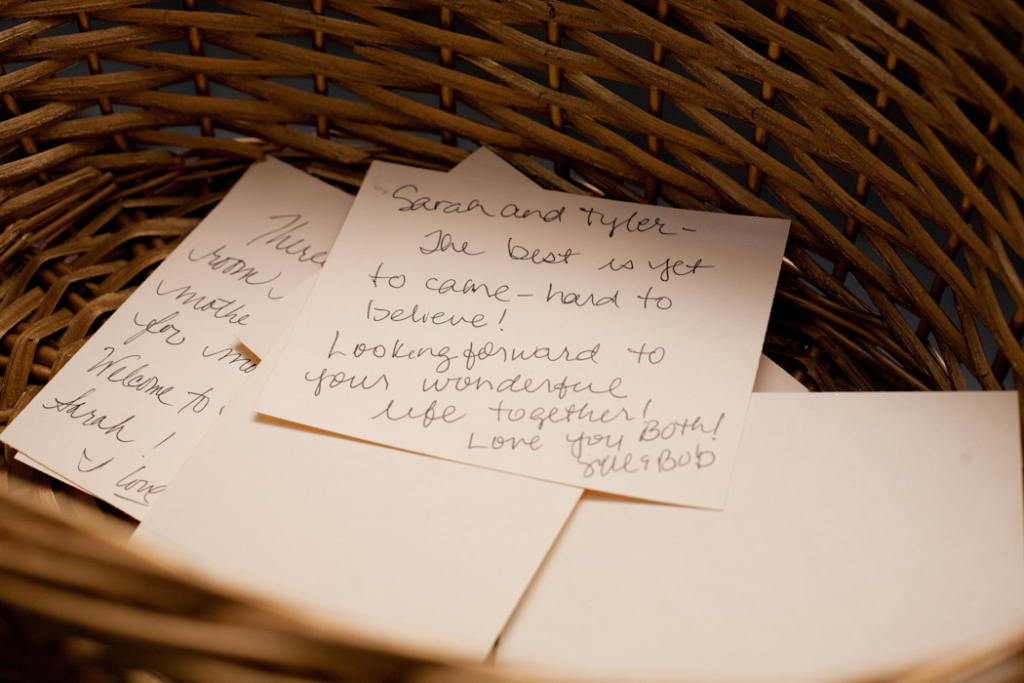 Sarah and Tyler-
The best is yet
to came - hard to
believe!
Looking forward to
your wonderful
life together!
Love you Both!
& Bob
There
room
mothe
for mo
Welcome to
Sarah!
I love